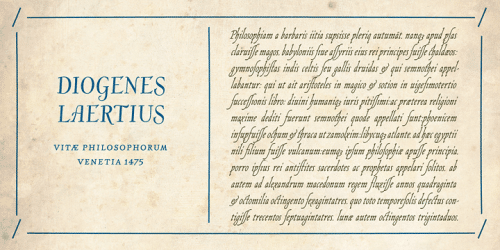 DIOGENES
LAERTIUS
VITÆ PHILOSOPHORUM
VENETIA 1475
Philosophiam a barbaris iitia supsisse pleriq autumāt. nanq; apud psas
claruisse magos. babyloniis siue assyriis eius rei principes fuisse chaldæos:
gymnosophistas indis celtis seu gallis druidas & qui semnothei appel-
labantur: qui ut ait aristoteles in magico & sotion in uigesimotertio
successionis libro: diuini humaniq; iuris pitissimi: ac præterea religioni
maxime dediti fuerunt semnothei quode appellati sunt: phoenicem
insup fuisse ochum & thraca ut zamolxim: libyuuq; atlante. ad hæc egyptii
nili filium fuisse vulcanum: eumq; ipsum philosophiæ apuisse principia.
porro ipsius rei antistites sacerdotes ac prophetas appellari solitos. ab
autem ad alexandrum macedonum regem fluxisse annos quadraginta
& octomilia octingento sexagintatres. quo toto temporeSolis defectus con-
tigisse trecentos septuagintatres. lunæ autem octingentos trigintaduos.